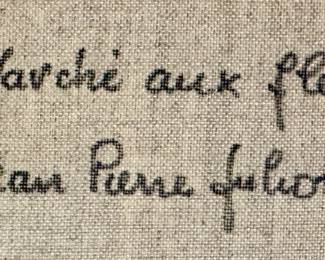 Marché aux fle
ean Pierre Julio